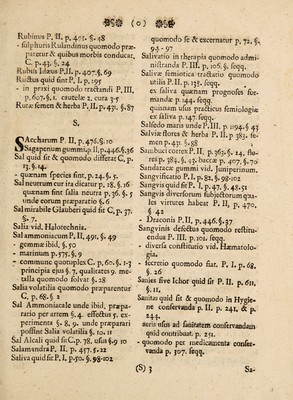 (0)
Rubinus P. II. p. 401. §. 48
- sulphuris Rulandinus quomodo præ-
paretur & quibus morbis conducar.
C. p. 43. §. 24
Rubus Idæus P. II. p. 407. §. 69
Ructus quid sint P. I. p. 295
- in praxi quomodo tractandi P. III.
p. 607. §. 1. cautelæ 2. cura 3-5
Rutæ semen & herba P. II. p. 43. §. 87
S.
SAccharum P. II. p. 476. §. 10
Sagapenum gummi p. II. p. 446. §. 36
Sal quid sit & quomodo differat C. p.
13. §. 14.
- quænam species sint. p. 24. §. 5.
Sal neutrum cur ita dicatur p. 18. §. 16
quænam sint salia neutra p. 36. §. 5
unde eorum præparatio §. 6
Sal mirabile Glauberi quid sit C. p. 37.
§. 7.
Salia vid. Halotechnia.
Sal ammoniacum P. II. 491. §. 49
- gemmæ ibid. §. 50
- marinum p. 375. §. 9
- commune quotuplex C. p. 60. §. 1-3
principia ejus §. 7. qualitates 9. me-
talla quomodo solvat §. 28
Salia volatilia quomodo præparentur
C. p. 68. §. 2
Sal Ammoniacale unde ibid, præpa-
ratio per artem §. 4. effectus 5. ex-
perimenta §. 8. 9. unde præparari
possint Salia volatilia §. 10. 11
Sal Alcali quid sit C. p. 78. usus §. 9 10
Salamandra P. II. p. 457. §. 22
Saliva quid sit P. I. p. 50. §. 98-102
quomodo se & excernatur p. 72. §.
94 - 97
Salivatio in therapia quomodo admi-
nistranda P. III. p. 106. §. seqq.
Salivæ semiotica tractatio quomodo
utilis P. II. p. 138. seqq.
ex saliva quænam prognoses for-
mandæ p. 144. seqq.
quinam usus practicus semiologiæ
ex saliva p. 147. seqq.
Salsedo maris unde P. III. p. 1194. §. 43
Salviæ flores & herba P. II. p. 382. se-
men p. 431. §. 88
Sambuci cortex P. II. p. 363. §. 24. flo-
res p. 384. §. 43. baccæ p. 407. §. 70
Sandaraca gummi vid. Juniperinum.
Sangvificatio P. I. p. 82. §. 99-102
Sangvis quid sit P. I. p. 47. §. 43-51
Sangvis diversorum subjectorum qua-
les virtutes habeat P. II, p. 470.
§. 42
- Draconis P. II. p. 446. §. 37
Sangvinis defectus quomodo restitu-
endus P. III. p. 101. seqq.
- diversa constitutio vid. Hæmatolo-
gia.
- secretio quomodo fiat. P. I. p. 68.
§. 26
Sanies sive Ichor quid sit P. II. p. 611.
§. 11.
Sanitas quid sit & quomodo in Hygie-
ne conservanda p. II. p. 241. & p.
244.
aeris usus ad sanitatem conservandam
quid contribuat. p. 251.
- quomodo per medicamenta conser-
vanda p. 307. seqq.
(S) 3
Sa-